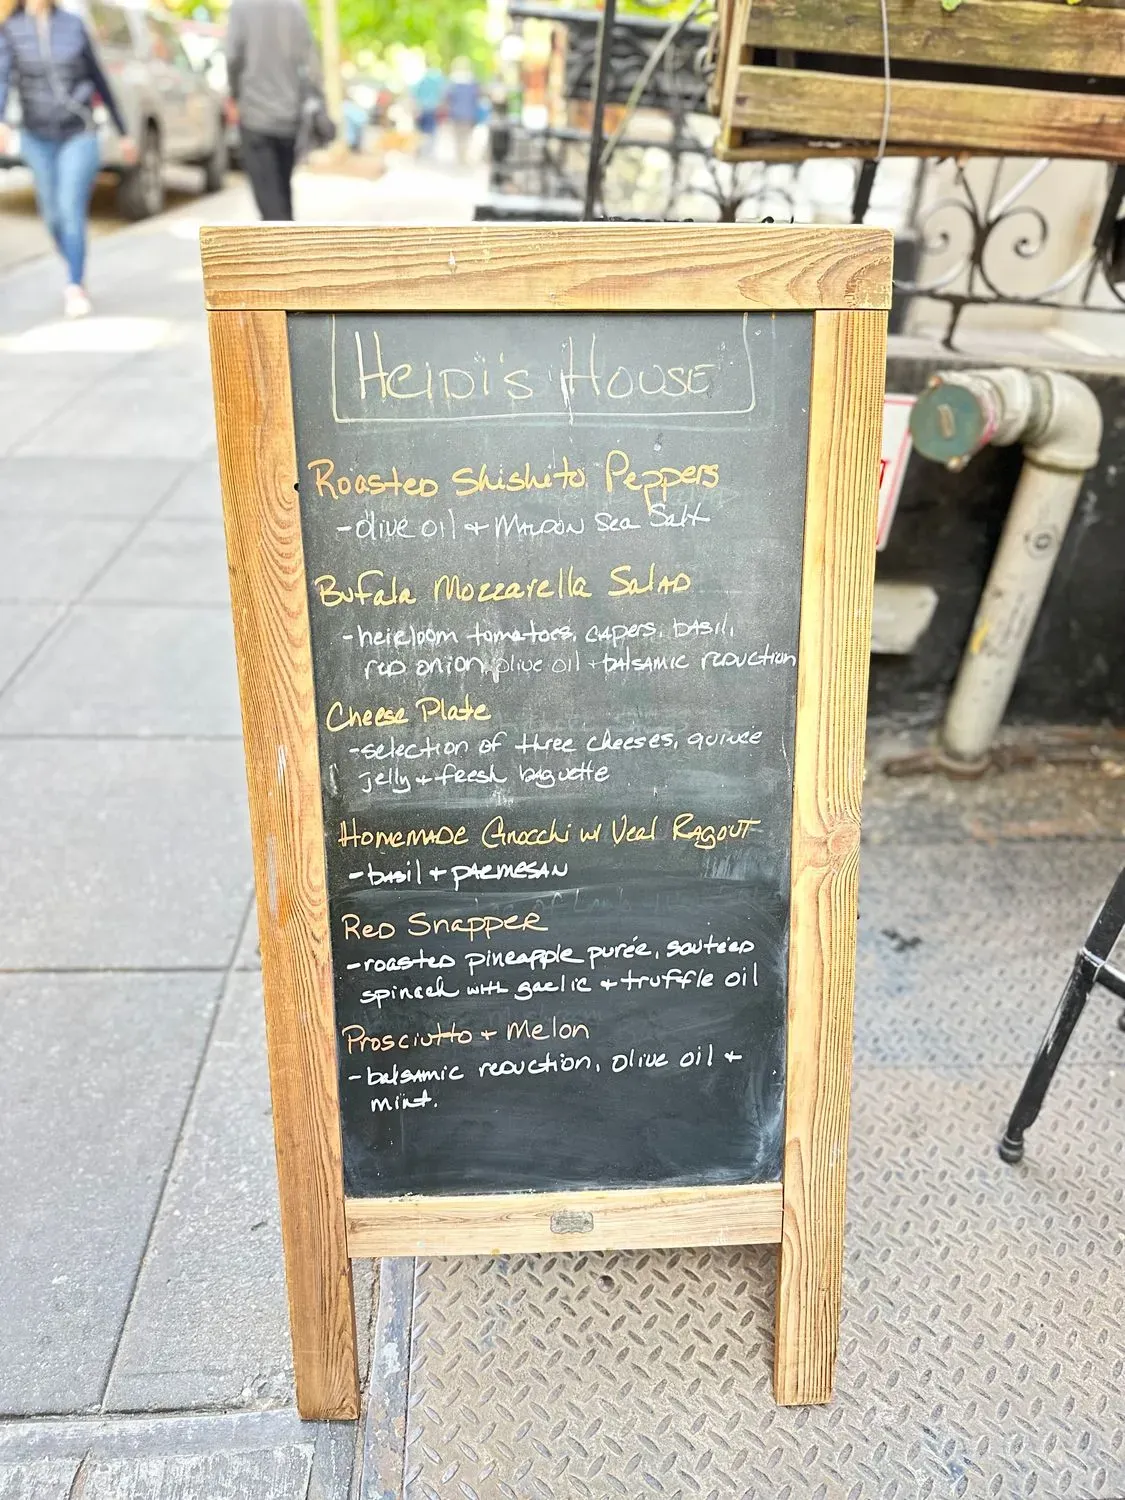 Heidi's House
Roasted Shishito Peppers
- olive oil + Maldon Sea Salt
Bufala Mozzarella Salad
- heirloom tomatoes, capers, basil,
red onion, olive oil + balsamic reduction
Cheese Plate
- selection of three cheeses, quince
jelly + fresh baguette
Homemade Gnocchi w/ Veal Ragout
- basil + parmesan
Red Snapper
- roasted pineapple purée, sautéed
spinach with garlic + truffle oil
Prosciutto + Melon
- balsamic reduction, olive oil +
mint.